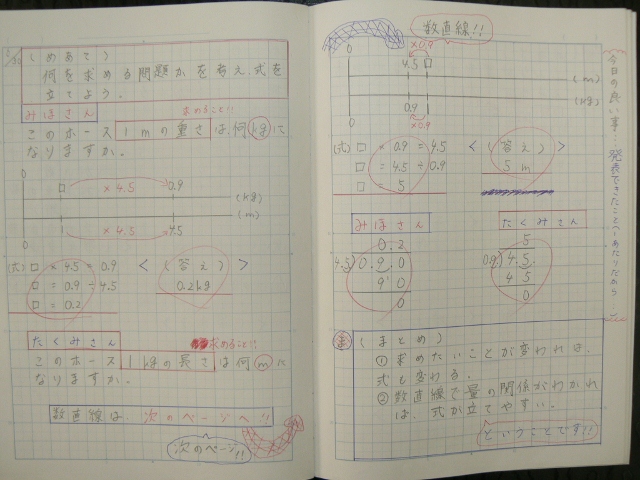 (めあて)
何を求める問題かを考え、式を
立てよう。
みほさん
求めること!!
このホース1mの重さは、何kgに
なりますか。
0 □ ×4.5 0.9
(kg)
(m)
0 ×4.5 4.5
(式) □ × 4.5 = 0.9
□ = 0.9 ÷ 4.5
□ = 0.2
< (答え) >
0.2kg
たくみさん
求めること!!
このホース1kgの長さは何mに
なりますか。
数直線は、次のページへ!!
次のページ!!
数直線!!
×0.9
0 4.5 □
(m)
(kg)
0 0.9
×0.9
(式) □ × 0.9 = 4.5
□ = 4.5 ÷ 0.9
□ = 5
< (答え) >
5m
みほさん
0.2
4.5)0.9.0
9 0
0
たくみさん
5
0.9)4.5.
4 5
0
ま (まとめ)
①求めたいことが変われば、
式も変わる。
②数直線で量の関係がわかれ
ば、式が立てやすい。
ということです!!
今日の良い事…発表できたこと